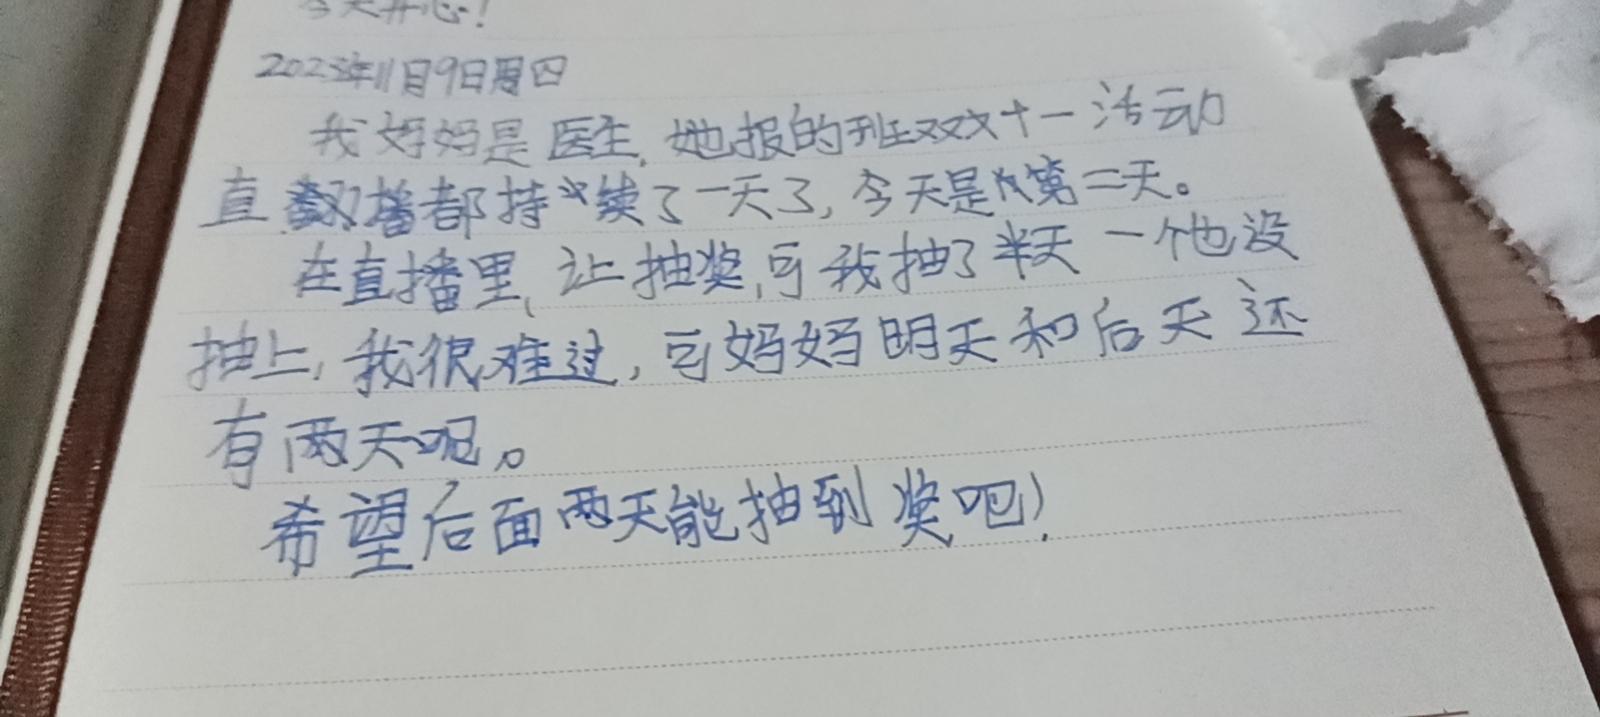 今天开心！
2023年11月9日周四
我妈妈是医生,她报的班双双十一活动
直播都持续了一天了,今天是第二天。
在直播里,让抽奖,可我抽了半天一个也没
抽上,我很难过,可妈妈明天和后天还
有两天呢。
希望后面两天能抽到奖吧！